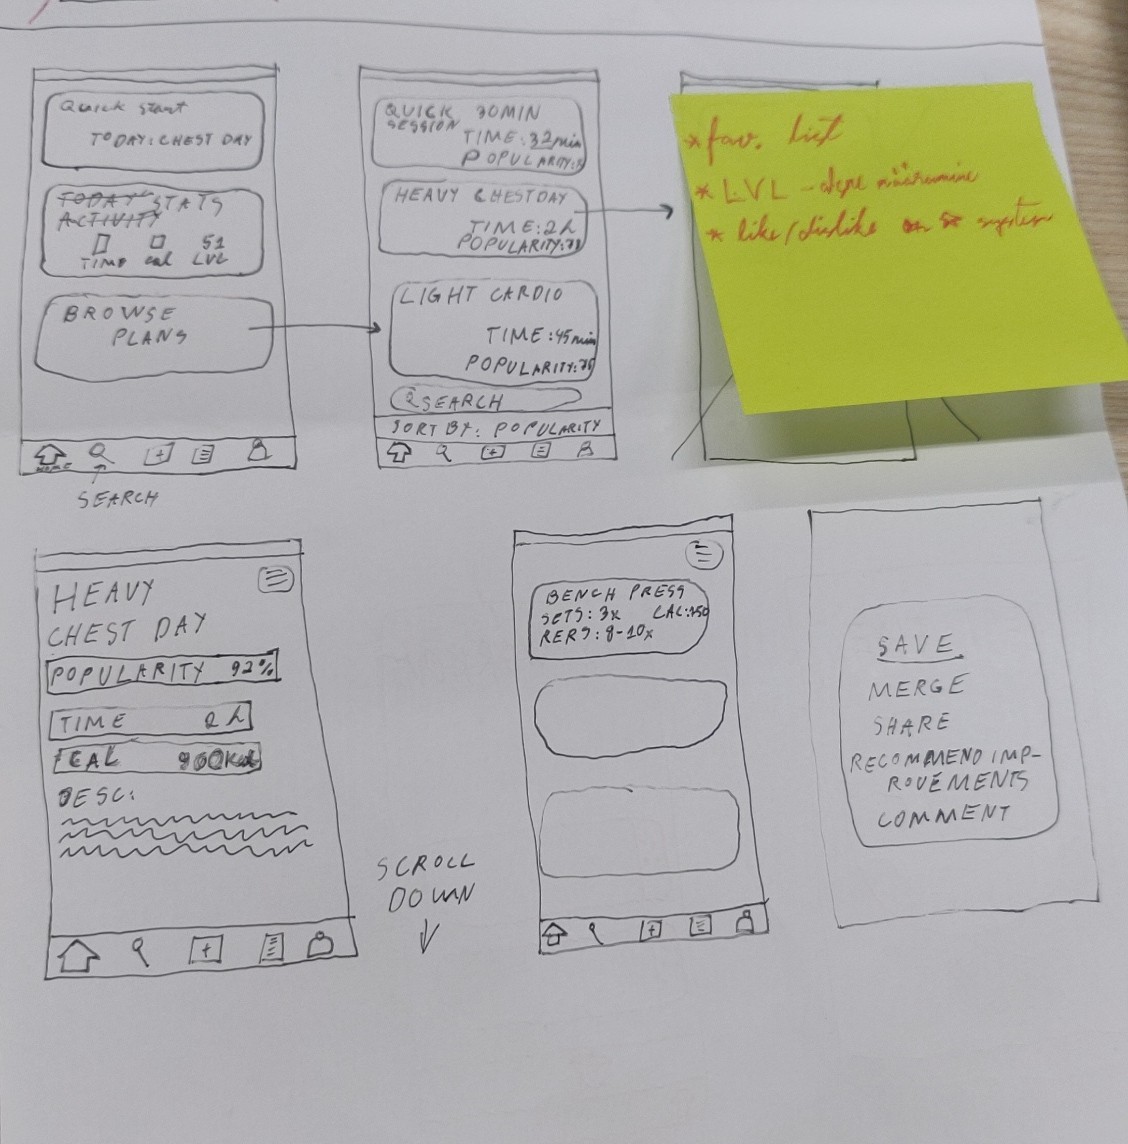 Quick start
TODAY: CHEST DAY
TODAY STATS
ACTIVITY
51
TIME cal LVL
BROWSE
PLANS
HOME
SEARCH
QUICK 30MIN
SESSION
TIME: 32min
POPULARITY:
HEAVY CHESTDAY
TIME: 2h
POPULARITY:
LIGHT CARDIO
TIME: 45min
POPULARITY:
SEARCH
SORT BY: POPULARITY
* fav. list
* LVL -
* like/dislike system
HEAVY
CHEST DAY
POPULARITY 92%
TIME 2h
CAL 900kcal
DESC:
SCROLL
DOWN
BENCH PRESS
SETS: 3x CAL:
REPS: 8-10x
SAVE
MERGE
SHARE
RECOMMEND IMP-
ROVEMENTS
COMMENT